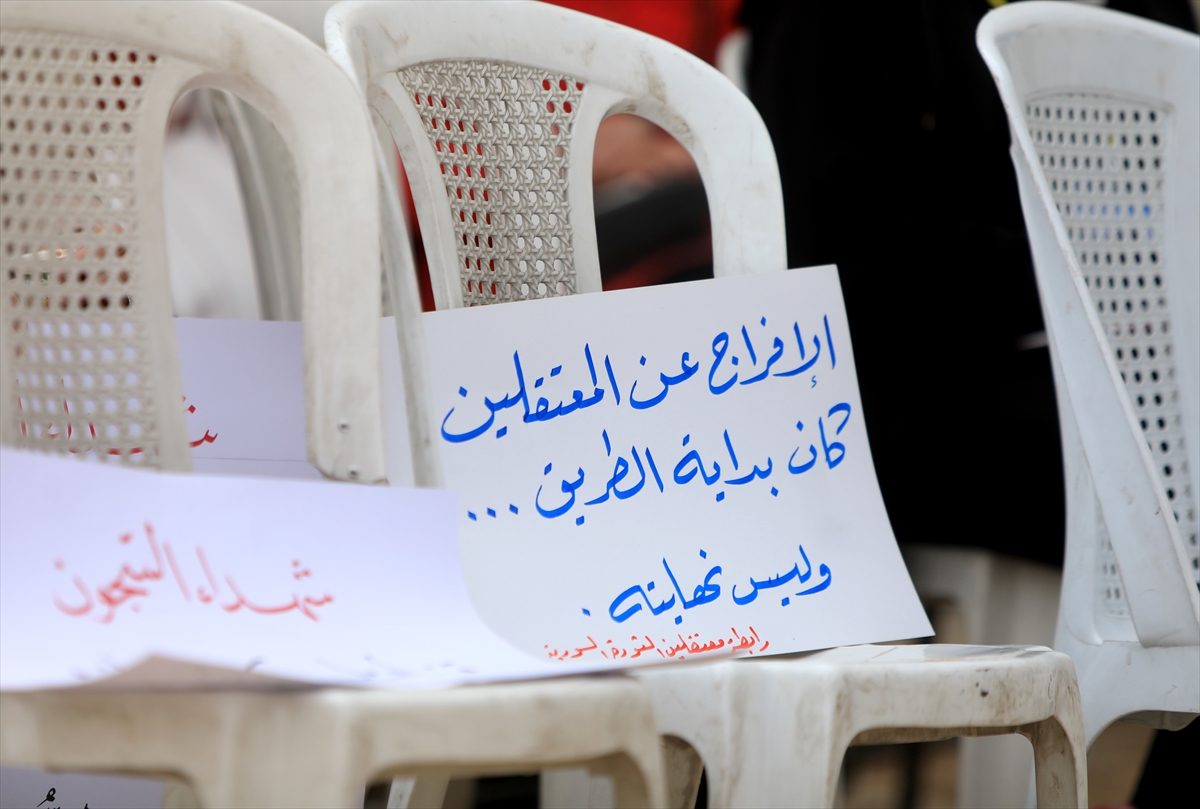 الإفراج عن المعتقلين
كان بداية الطريق ...
وليس نهايته .
رابطة معتقلين الثورة السورية
شهداء السجون